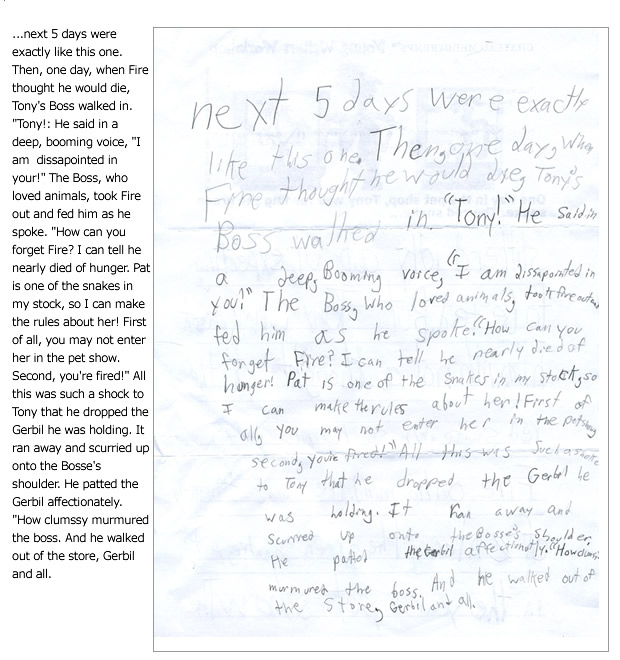 ...next 5 days were
exactly like this one.
Then, one day, when Fire
thought he would die,
Tony's Boss walked in.
"Tony!: He said in a
deep, booming voice, "I
am dissapointed in
your!" The Boss, who
loved animals, took Fire
out and fed him as he
spoke. "How can you
forget Fire? I can tell he
nearly died of hunger. Pat
is one of the snakes in
my stock, so I can make
the rules about her! First
of all, you may not enter
her in the pet show.
Second, you're fired!" All
this was such a shock to
Tony that he dropped the
Gerbil he was holding. It
ran away and scurried up
onto the Bosse's
shoulder. He patted the
Gerbil affectionately.
"How clumssy murmured
the boss. And he walked
out of the store, Gerbil
and all.
next 5 days were exactly
like this one. Then, one day, when
Fire thought he would die, Tony's
Boss walked in. "Tony!" He said in
a deep, Booming voice, "I am dissapointed in
you!" The Boss, who loved animals, took fire out and
fed him as he spoke. "How can you
forget Fire? I can tell he nearly died of
hunger! Pat is one of the snakes in my stock, so
I can make the rules about her! First of
all, you may not enter her in the petshow
second, you're fired!" All this was such a shock
to Tony that he dropped the Gerbil he
was holding. It Ran away and
scurried up onto the Bosse's shoulder.
He patted the Gerbil affectionatly. "How
murmured the boss. And he walked out of
the store, Gerbil and all.